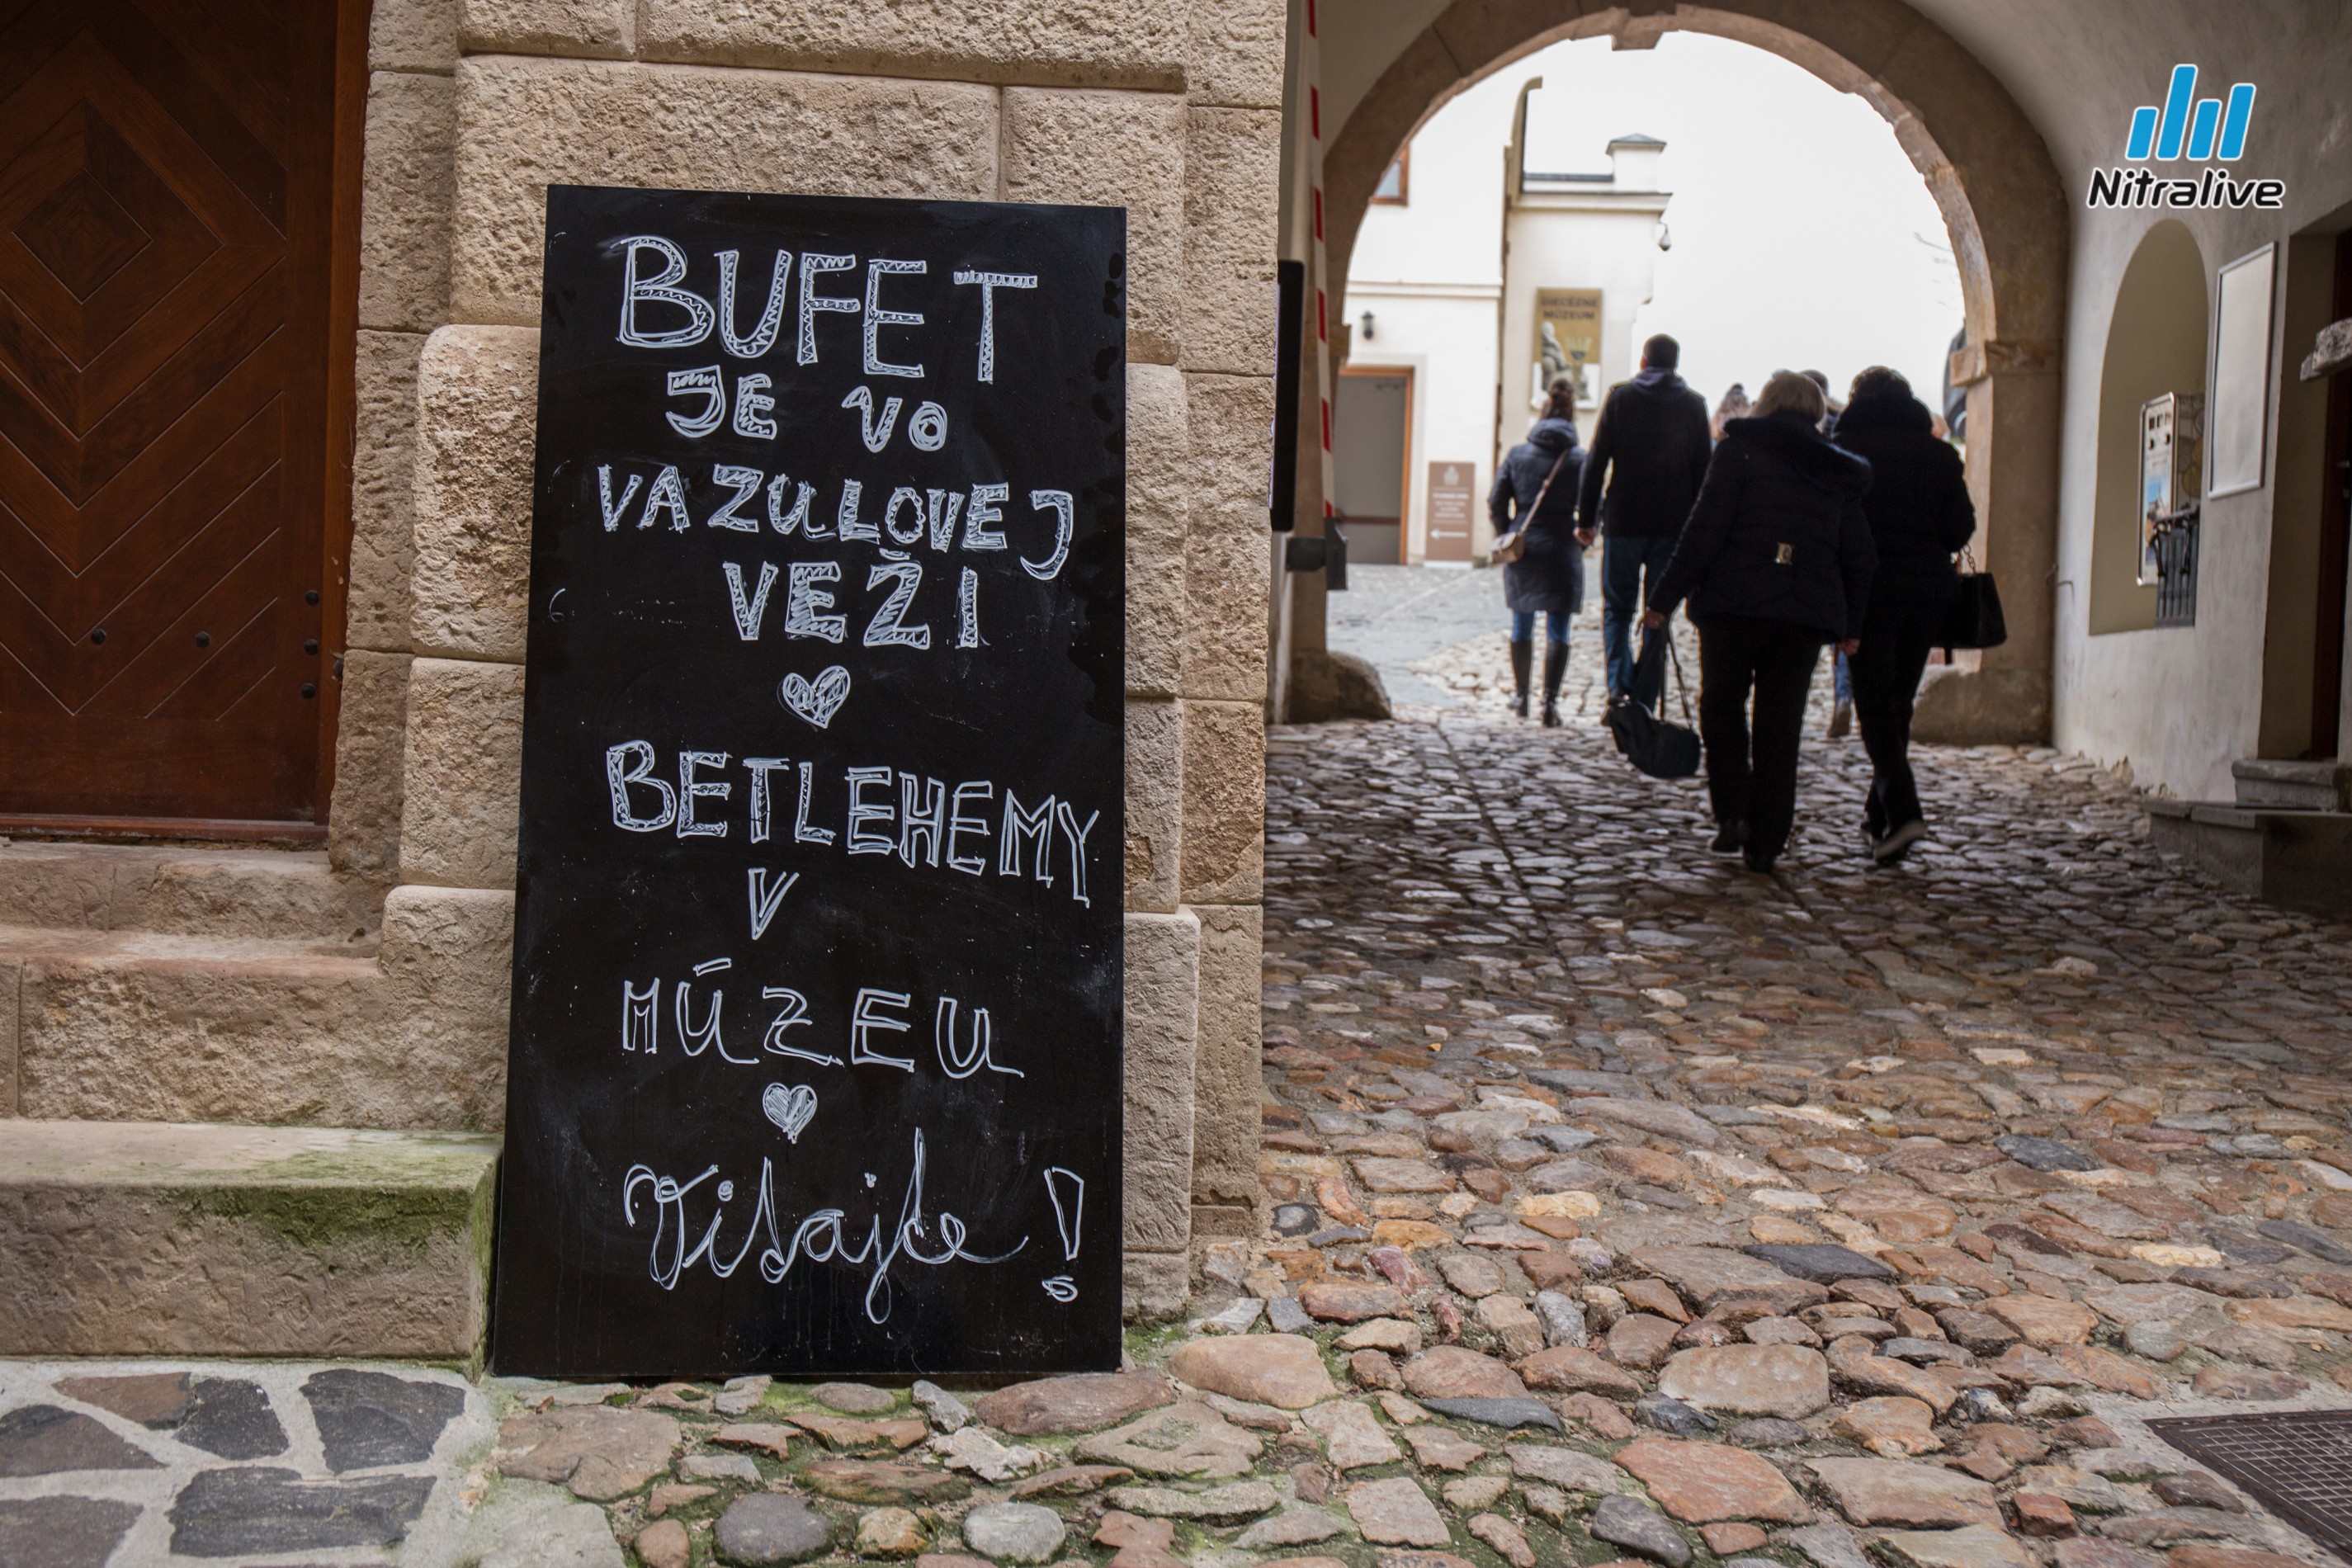 BUFET
JE VO
VAZULOVEJ
VEŽI
BETLEHEMY
V
MÚZEU
Vitajte!
Nitralive
DIECÉZNE
MÚZEUM